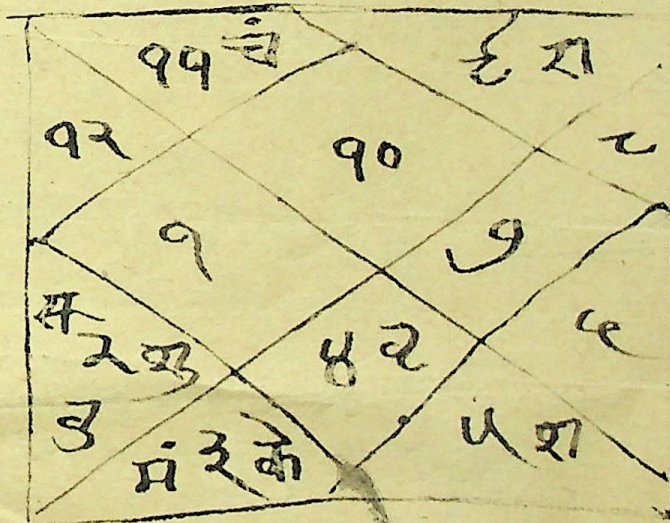 ११ चं
९ रा
१२
१०
८
१
७
सू
२ शु
बु
४ बृ
६
मं ३ के
५ श